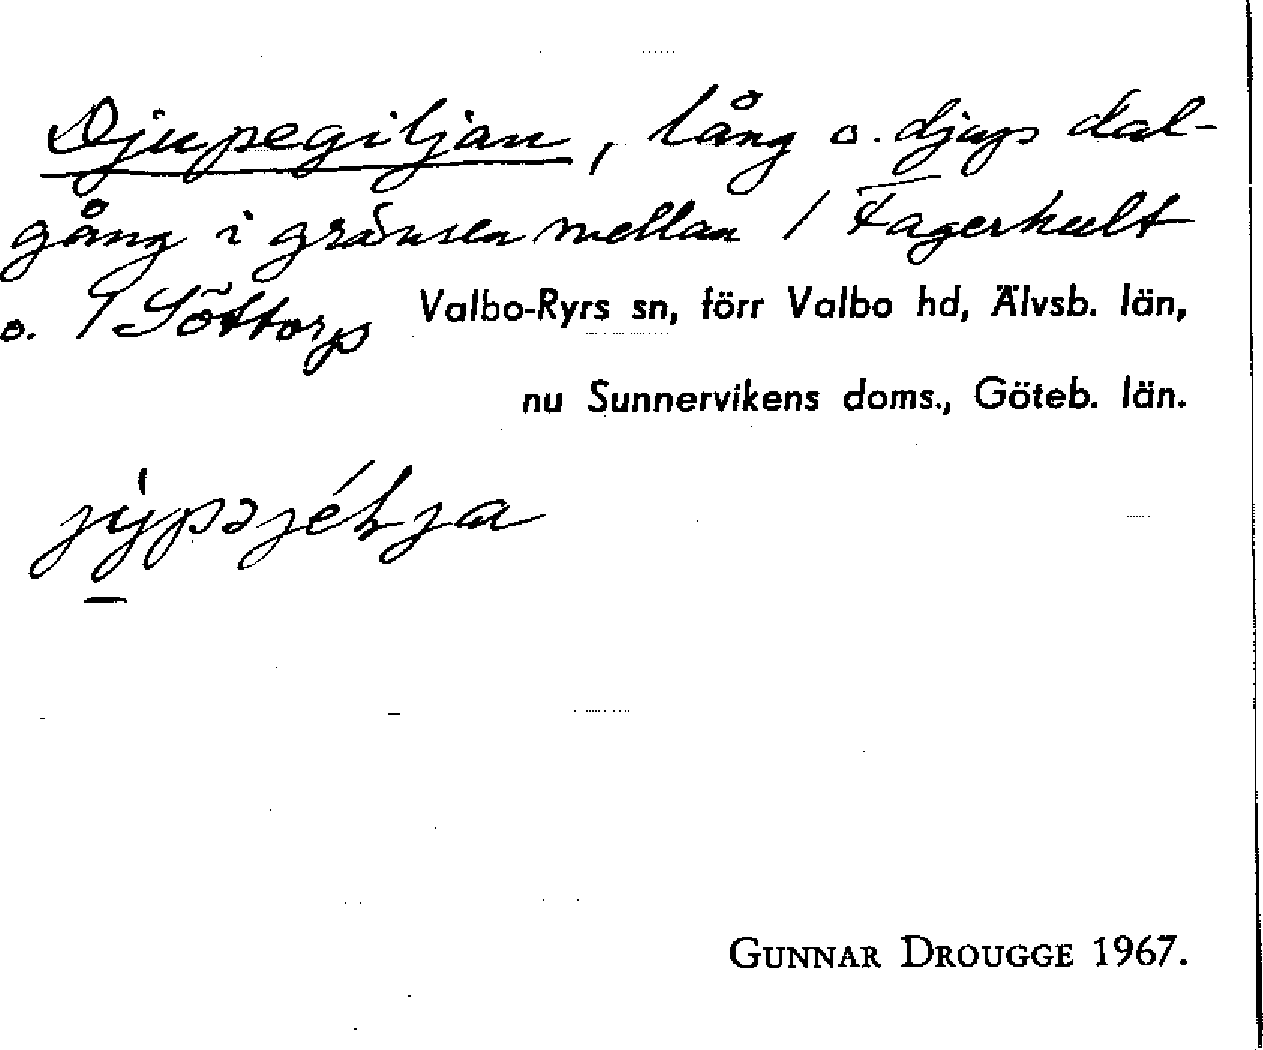 Djupegiljan, lång o. djup dal-
gång i gränsen mellan / Fagerhult
o. / Söttorp Valbo-Ryrs sn, förr Valbo hd, Älvsb. län,
nu Sunnervikens doms., Göteb. län.
GUNNAR DROUGGE 1967.